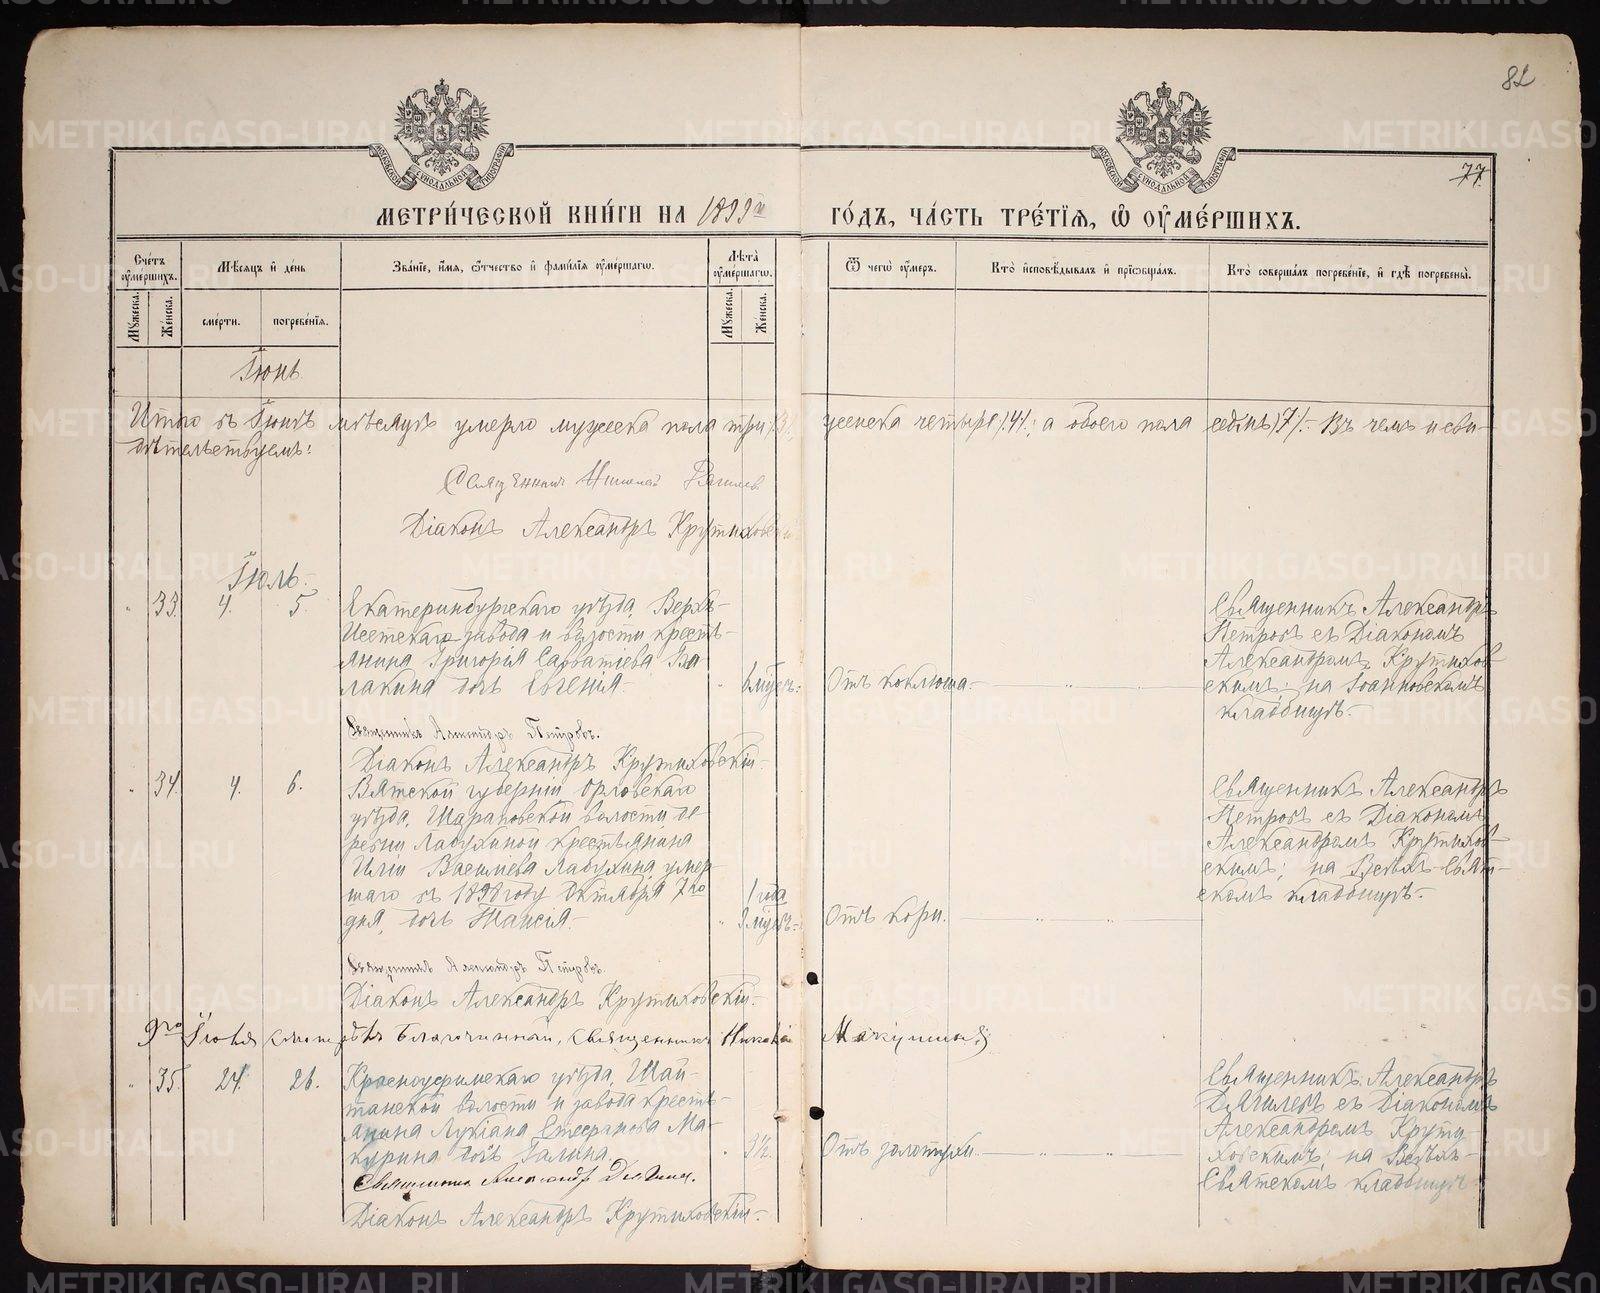 82
77
МЕТРИ́ЧЕСКОЙ КНИ́ГИ НА 1899й ГО́ДЪ, ЧА́СТЬ ТРЕ́ТІѦ, Ѿ ОУ҆МЕ́РШИХЪ.
Сче́тъ оу҆ме́ршихъ.
Мѣ́сяцъ и҆ де́нь
Зва́нїе, и҆́мя, ѿ́тчество и҆ фами́лїя оу҆ме́ршагѡ.
Лѣ́та оу҆ме́ршагѡ.
Ѿ чегѡ̀ оу҆́меръ.
Кто̀ и҆сповѣ́дывалъ и҆ прїѡбща́лъ.
Кто̀ соверша́лъ погребе́нїе, и҆ гдѣ̀ погребены̀.
Мꙋ́жеска.
Же́нска.
сме́рти.
погребе́нїя.
Мꙋ́жеска.
Же́нска.
Іюнь
Итого въ Іюнѣ мѣсяцѣ умерло мужеска пола три /3/., женска четыре /4/.; а обоего пола семь /7/.- Въ чемъ и сви-
дѣтельствуемъ:
Священникъ Николай
Діаконъ Александръ Крутиховскій
Іюль.
" 33. 4. 5. Екатеринбургскаго уѣзда, Верхъ-
Исетскаго завода и волости кресть-
янина Григорія Савватіева Ва
лакина дочь Евгенія. " 6 мѣсяч. Отъ коклюша.
Священникъ Александръ
Петровъ съ Діакономъ
Александромъ Крутихов
скимъ; на Іоанновскомъ
кладбищѣ.
Священникъ Александръ Петровъ.
Діаконъ Александръ Крутиховскій.
" 34. 4. 6. Вятской губерніи Орловскаго
уѣзда, Шараповской волости де
ревни крестьянина
Иліи Василіева умер
шаго въ 1898 году Октября 7го
дня, дочь Таисія. " 1 года Отъ кори.
Священникъ Александръ
Петровъ съ Діакономъ
Александромъ Крутихов
скимъ; на Всѣхъ-Свят-
скомъ кладбищѣ.
Священникъ Александръ Петровъ.
Діаконъ Александръ Крутиховскій.
9го Іюля смотрѣлъ Благочинный, Священникъ Николай
" 35. 24. 26. Красноуфимскаго уѣзда, Шай-
танской волости и завода кресть-
янина Лукіана Стефанова Ма-
курина дочь Галина. " 3½. Отъ золотухи.
Священникъ Александръ
Дягилевъ съ Діакономъ
Александромъ Крути-
ховскимъ; на Всѣхъ-
Святскомъ кладбищѣ
Священникъ Александръ Дягилевъ.
Діаконъ Александръ Крутиховскій.
METRIKI.GASO-URAL.RU